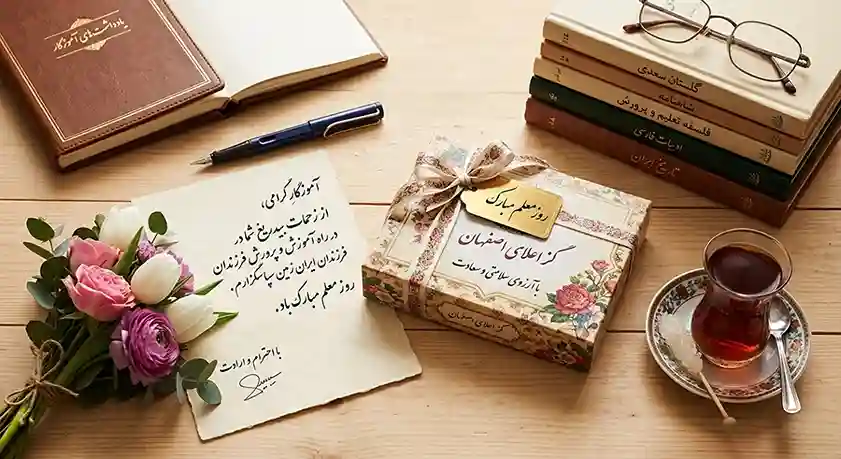 یادداشت‌های آموزگار
گلستان سعدی
شاهنامه
فلسفه تعلیم و پرورش
ادبیات فارسی
تاریخ ایران
آموزگار گرامی،
از زحمات بیدریغ شما در
در راه آموزش و پرورش فرزندان
فرزندان ایران زمین سپاسگزارم.
روز معلم مبارک باد.
با احترام و ارادت
روز معلم مبارک
گز اعلای اصفهان
با آرزوی سلامتی و سعادت
گز اعلای اصفهان